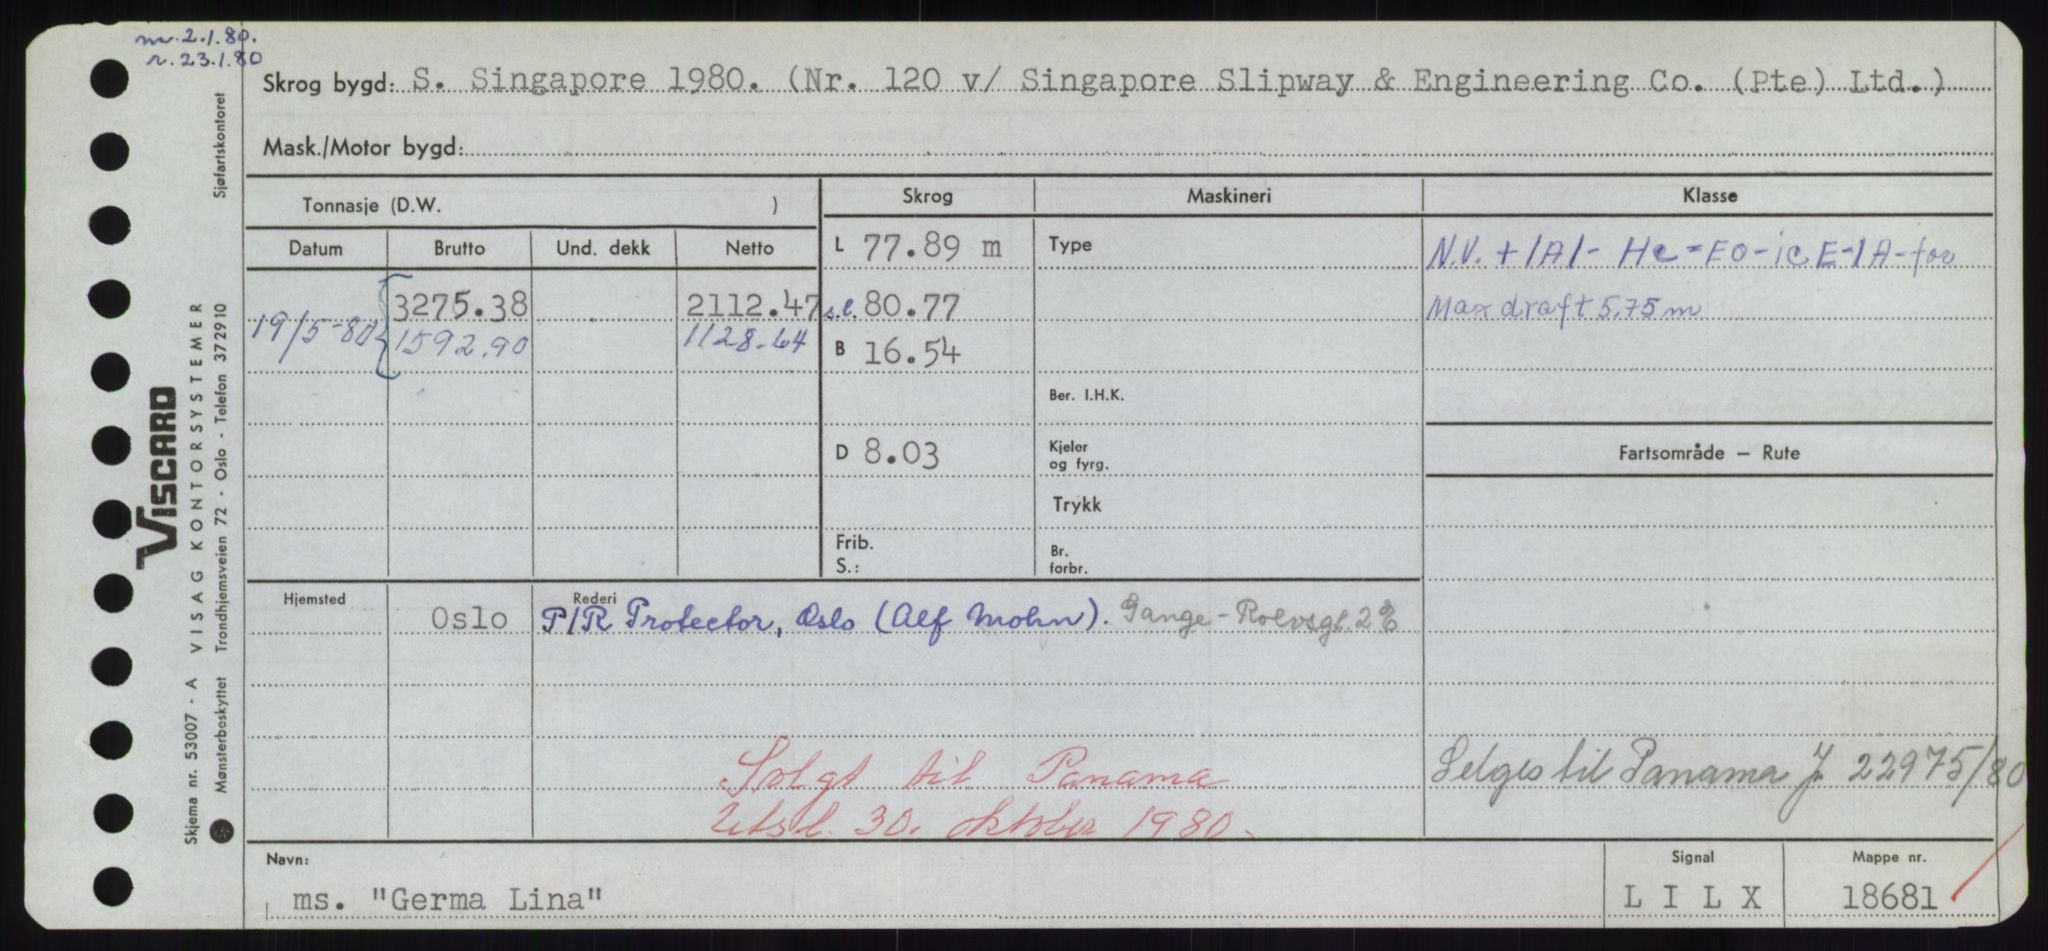 m. 2.1.80.
r. 23.1.80
Skrog bygd: S. Singapore 1980. (Nr. 120 v/ Singapore Slipway & Engineering Co. (Pte) Ltd.)
Mask./Motor bygd:
Tonnasje (D.W. )
Skrog
Maskineri
Klasse
Datum Brutto Und. dekk Netto
L 77.89 m
Type
N.V. + 1A1 - Hc = EO - icE - 1A - for
3275.38 2112.47
s.l. 80.77
Max draft 5.75 m
19/5-80 1592.90 1128.64
B 16.54
Ber. I.H.K.
D 8.03
Kjeler
og fyrg.
Fartsområde — Rute
Trykk
Frib.
S.:
Br.
forbr.
Hjemsted
Rederi
Oslo P/R Protector, Oslo (Alf Mohn). Gange-Rolvsgt. 2
Solgt til Panama
Utsl. 30. oktober 1980.
Selges til Panama J 22975/80
Navn:
ms. "Germa Lina"
Signal
L I L X
Mappe nr.
18681
VISCARD
Skjema nr. 53007 - A VISAG KONTORSYSTEMER
Mønsterbeskyttet Trondhjemsveien 72 - Oslo - Telefon 372910 Sjøfartskontoret